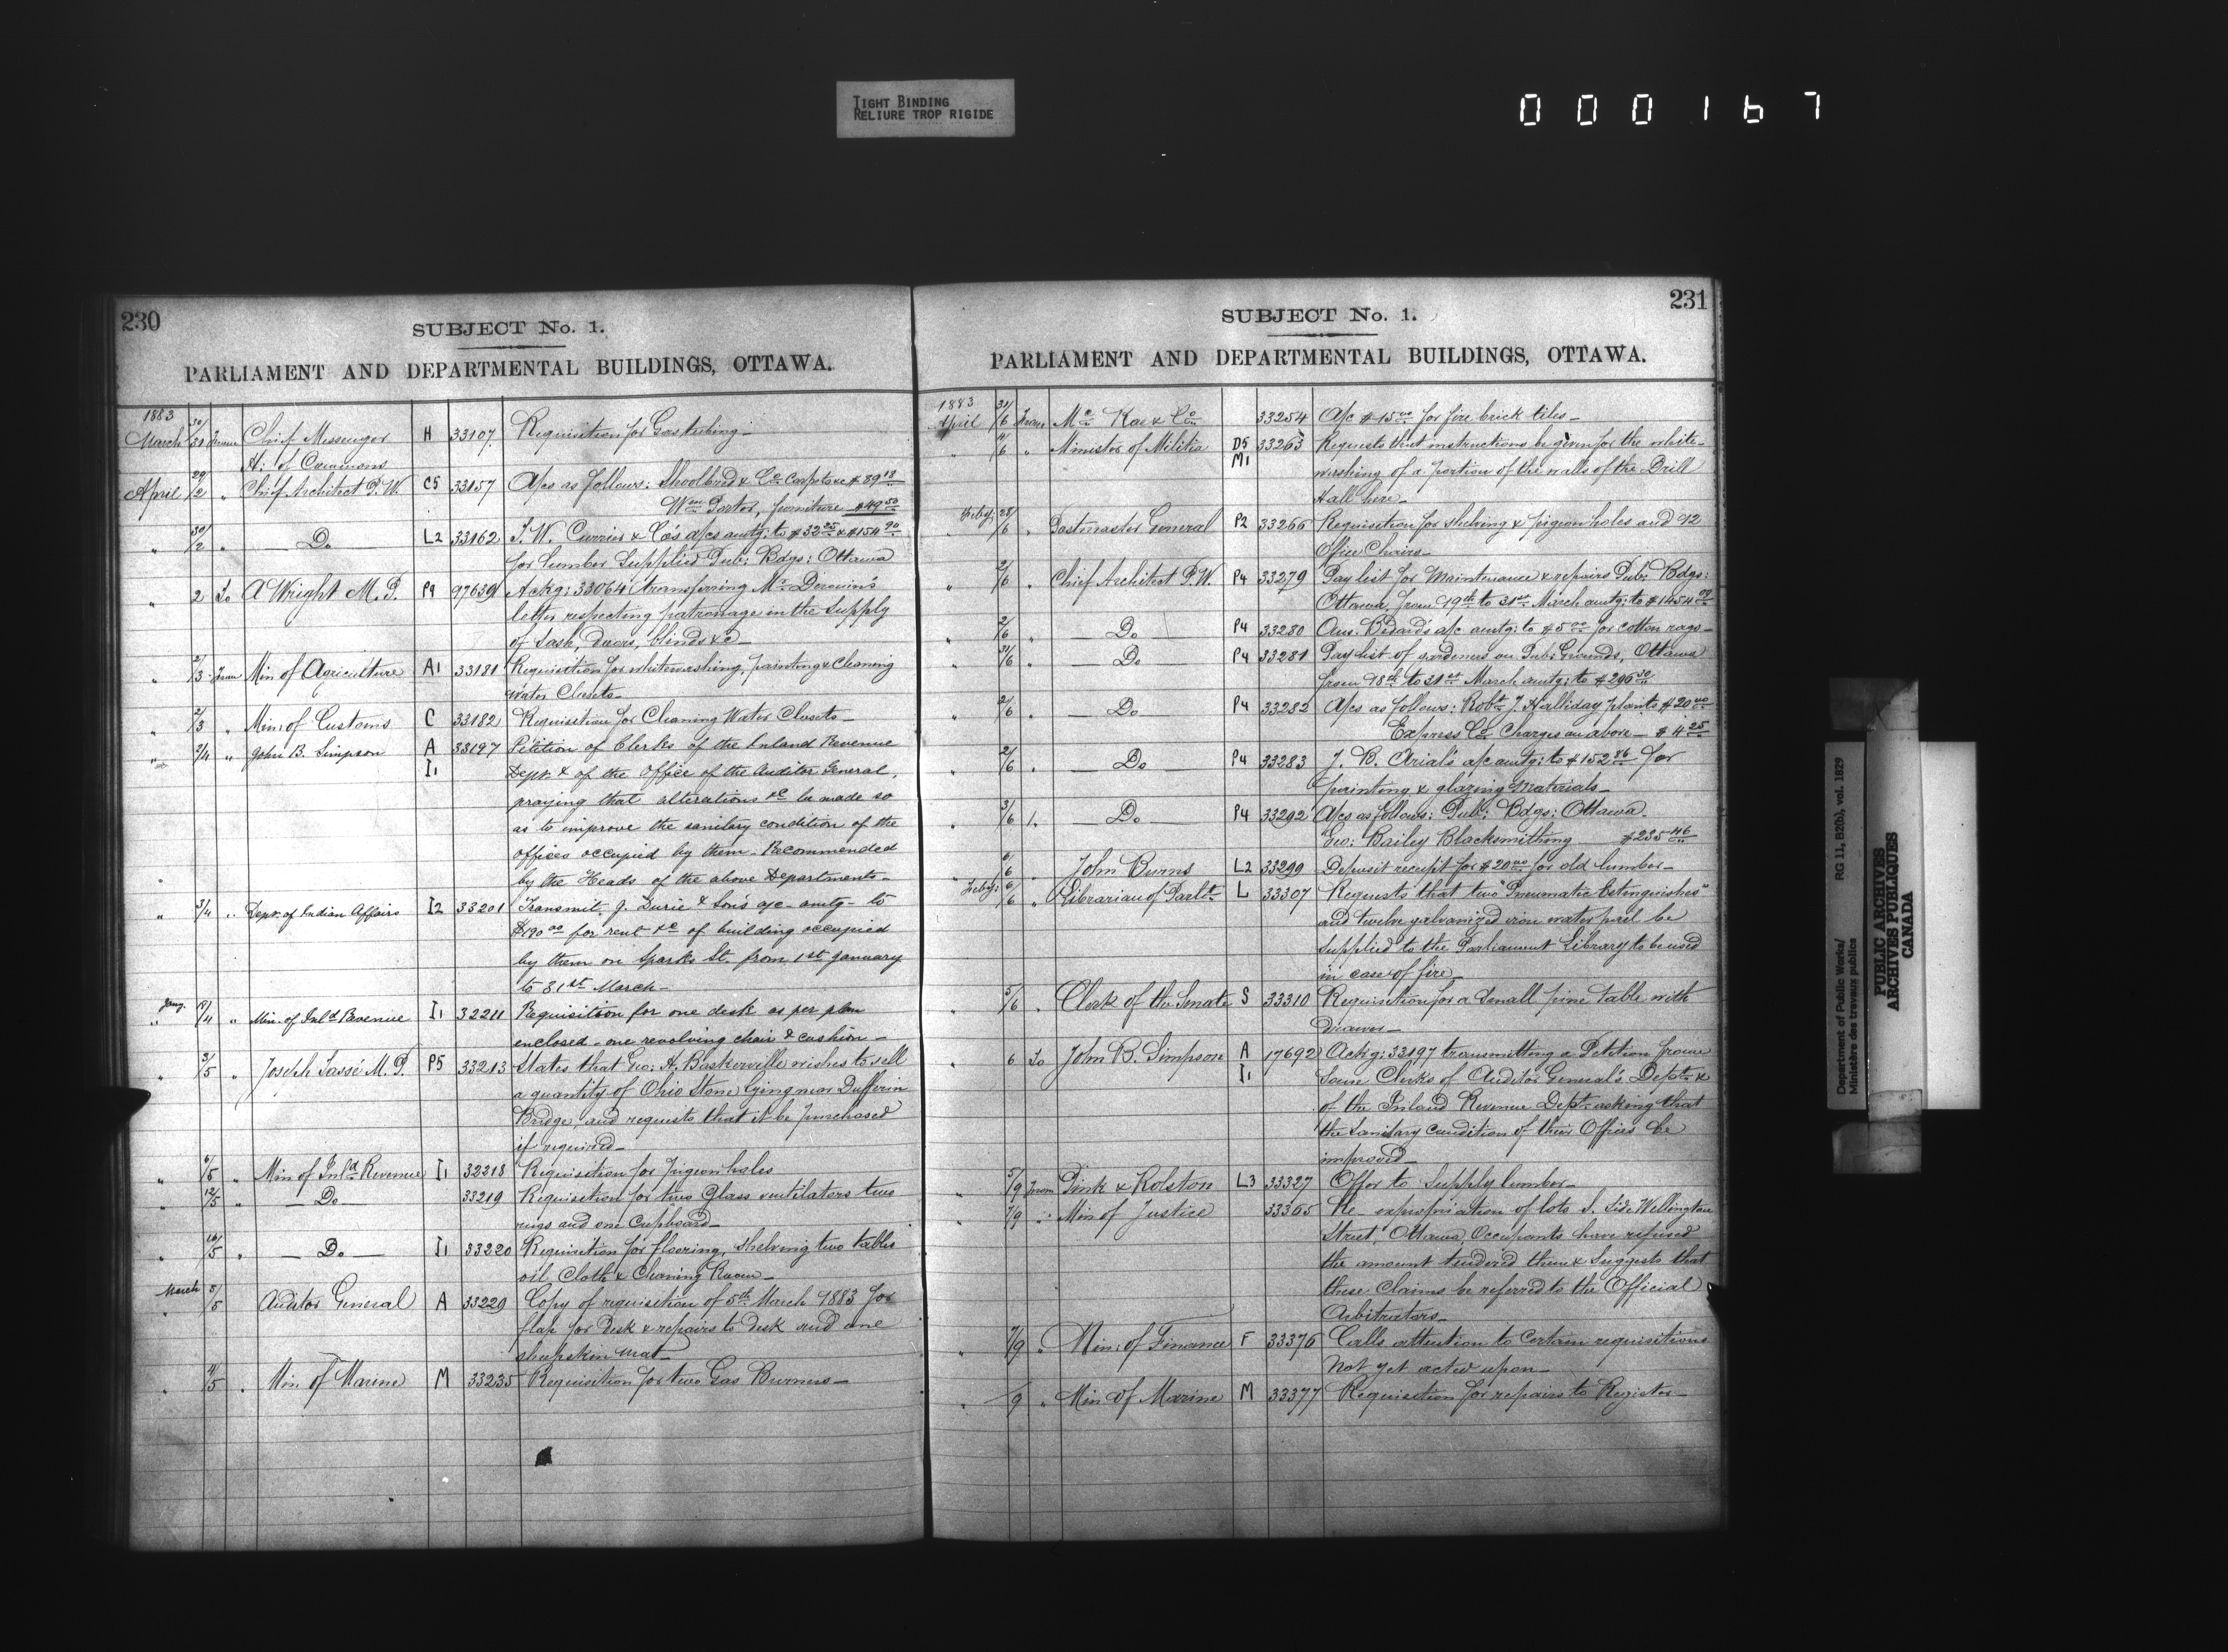 TIGHT BINDING
RELIURE TROP RIGIDE
000167
230
SUBJECT No. 1.
PARLIAMENT AND DEPARTMENTAL BUILDINGS, OTTAWA.
1883
March 30/31 From Chief Messenger H 33107 Requisition for Gas tubing—
H: of Commons
April 29/2 " Chief Architect P.W. C5 33157 A/cs as follows: Shoolbred & Co Carpets &c $89 13
Wm Porter, furniture $49 50
" 30/2 " Do L2 33162 J. W. Currier & Co's a/cs amtg: to $32 25 & $154 90
for lumber supplied Pub: Bdgs: Ottawa
" 2 To A Wright M.P. P9 97639 Ackg: 33064 transferring Mr
letter respecting patronage in the supply
of Sash, Doors, blinds &c—
" 2/3 From Min of Agriculture A1 33181 Requisition for whitewashing, painting & cleaning
water Closets—
" 2/3 " Min: of Customs C 33182 Requisition for Cleaning Water Closets—
" 2/4 " John B. Simpson A 33197 Petition of Clerks of the Inland Revenue
I1 Dept. & of the Office of the Auditor General,
praying that alterations &c be made so
as to improve the sanitary condition of the
offices occupied by them. Recommended
by the Heads of the above Departments—
" 3/4 " Dept. of Indian Affairs I2 33201 Transmit. J. Durie & Son's a/c amtg— to
$190 00 for rent &c of building occupied
by them on Sparks St. from 1st January
to 31st March—
Jany. 18/4 " Min. of Inld Revenue I1 32211 Requisition for one desk as per plan
enclosed—one revolving chair & cushion—
" 3/5 " Joseph Tassé M.P. P5 33213 States that Geo: H. Baskerville wishes to sell
a quantity of Ohio Stone lying near Dufferin
Bridge, and requests that it be purchased
if required—
" 6/5 " Min of Inld Revenue I1 32218 Requisition for Pigeon holes
" 12/5 " Do 33219 Requisition for two Glass ventilators two
rugs and one Cupboard—
" 16/5 " Do I1 33220 Requisition for flooring, shelving two tables
oil Cloth & Cleaning Room—
March 5/5 Auditor General A 33229 Copy of requisition of 5th March 1883 for
flap for Desk & repairs to desk and one
sheepskin mat—
4/5 " Min of Marine M 33235 Requisition for two Gas Burners—
231
SUBJECT No. 1.
PARLIAMENT AND DEPARTMENTAL BUILDINGS, OTTAWA.
1883
April 31/6 From Mc Kay & Co 33254 A/c $15 00 for fire brick tiles—
" 4/6 " Minister of Militia D5 33263 Requests that instructions be given for the white-
M1 washing of a portion of the walls of the Drill
Hall here—
Feby. 28/6 " Postmaster General P2 33266 Requisition for shelving & pigeon holes and 12
Office Chairs—
" 2/6 " Chief Architect P.W. P4 33279 Pay list for Maintenance & repairs Pub: Bdgs:
Ottawa, from 19th to 31st March amtg: to $1454 09
" 2/6 Do P4 33280 Bédard's a/c amtg: to $5 00 for cotton rags—
" 31/6 Do P4 33281 Pay list of gardeners on Pub: Grounds, Ottawa
from 18th to 31st March amtg: to $206 50
" 2/6 " Do P4 33282 A/cs as follows: Robt J. Halliday plants $20 40
Express Co Charges on above— $4 25
" 2/6 " Do P4 33283 J. B. Arial's a/c amtg: to $152 86 for
painting & glazing Materials—
" 3/6 " Do P4 33292 A/cs as follows: Pub: Bdgs: Ottawa.
Geo: Bailey Blacksmithing $235 46
6/6 " John Burns L2 33299 Deposit receipt for $20 00 for old lumber—
Feby: 6/6 " Librarian of Parlt L 33307 Requests that two "Pneumatic Extinguishers"
and twelve galvanized iron water pails be
supplied to the Parliament Library to be used
in case of fire—
" 5/6 " Clerk of the Senate S 33310 Requisition for a Small pine table with
drawer—
" 6 To John B. Simpson A 17692 Ackg: 33197 transmitting a Petition from
I1 Some Clerks of Auditor General's Dept. &
of the Inland Revenue Dept. asking that
the Sanitary Condition of their Offices be
improved—
" 5/9 From Pink & Rolston L3 33327 Offer to Supply lumber—
" 7/9 " Min of Justice 33365 Re— expropriation of lots S. Side Wellington
Street, Ottawa, Occupants have refused
the amount tendered them & Suggests that
these Claims be referred to the Official
Arbitrators—
" 7/9 " Min: of Finance F 33376 Calls attention to Certain requisitions
Not yet acted upon—
" /9 " Min of Marine M 33377 Requisition for repairs to Register—
Department of Public Works/ RG 11, B2(b), vol. 1829
Ministère des travaux publics
PUBLIC ARCHIVES
ARCHIVES PUBLIQUES
CANADA